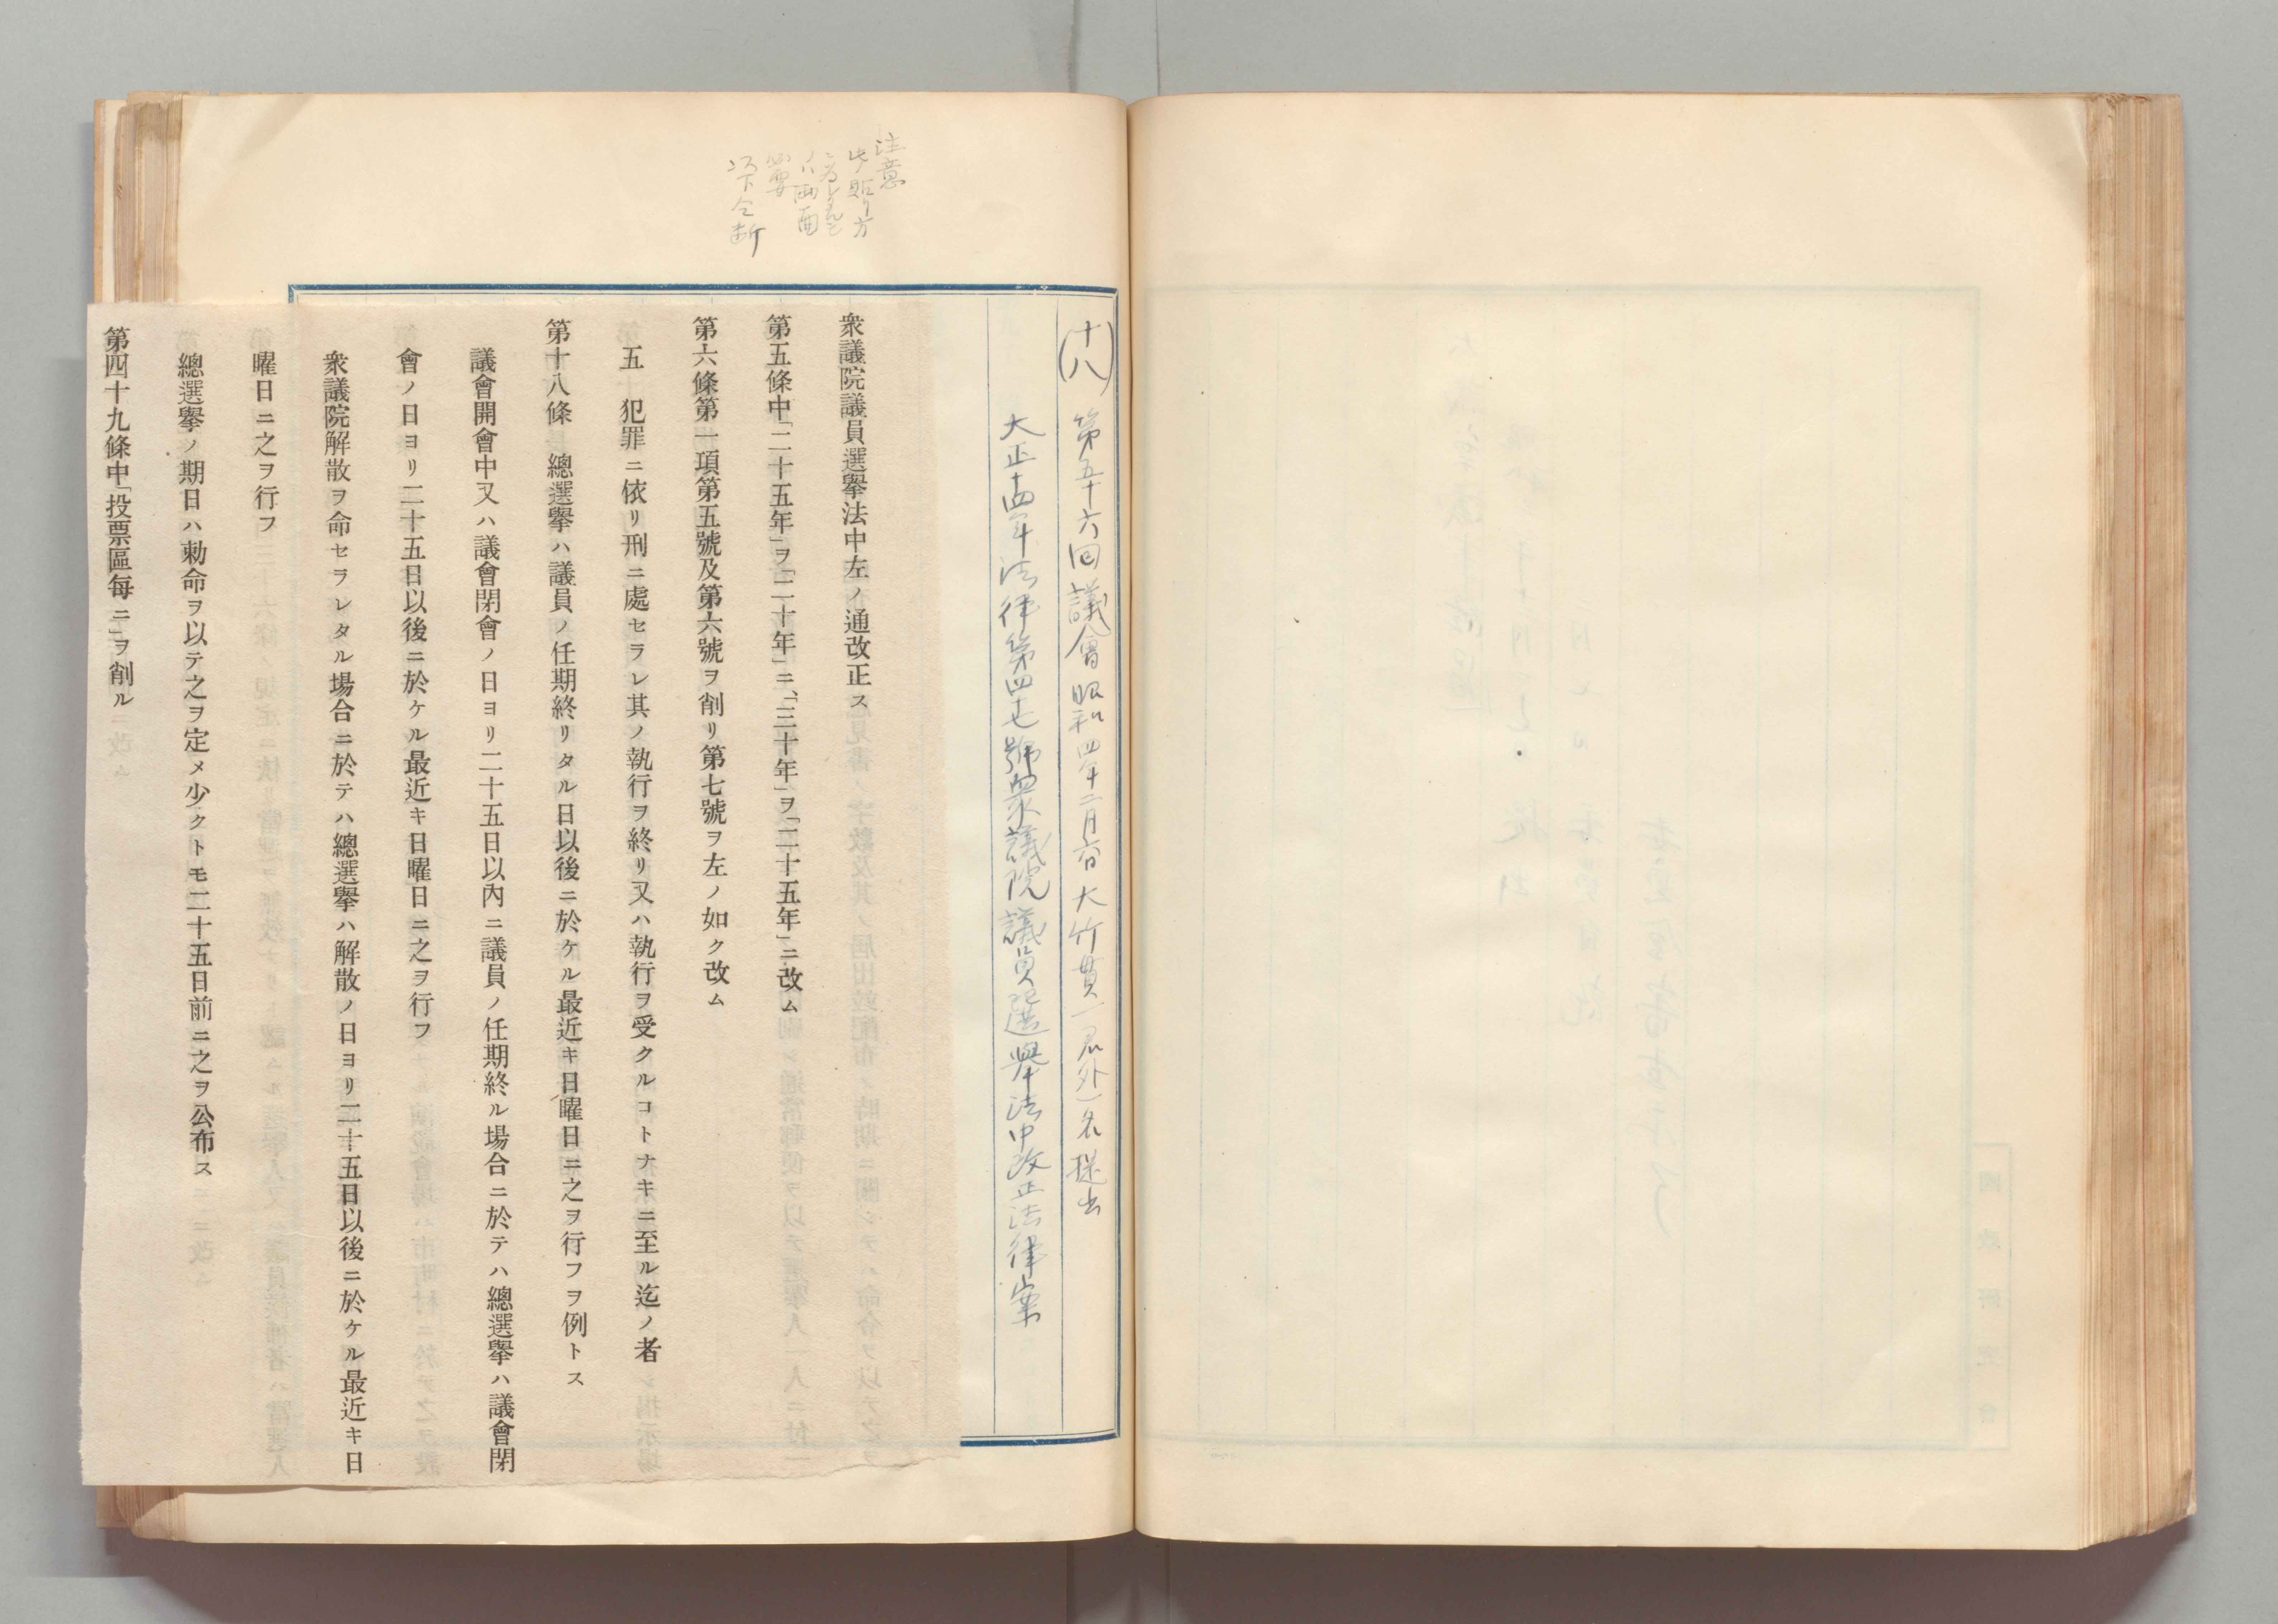 注意
此貼リ方
ハ両面
必要
以下全断
(十八) 第五十六回議會昭和四年二月六日大竹貫一君外一名提出
大正十四年法律第四十七號衆議院議員選擧法中改正法律案
衆議院議員選擧法中左ノ通改正ス
第五條中「二十五年」ヲ「二十年」ニ、「三十年」ヲ「二十五年」ニ改ム
第六條第一項第五號及第六號ヲ削リ第七號ヲ左ノ如ク改ム
五 犯罪ニ依リ刑ニ處セラレ其ノ執行ヲ終リ又ハ執行ヲ受クルコトナキニ至ル迄ノ者
第十八條 總選擧ハ議員ノ任期終リタル日以後ニ於ケル最近キ日曜日ニ之ヲ行フヲ例トス
議會開會中又ハ議會閉會ノ日ヨリ二十五日以內ニ議員ノ任期終ル場合ニ於テハ總選擧ハ議會閉
會ノ日ヨリ二十五日以後ニ於ケル最近キ日曜日ニ之ヲ行フ
衆議院解散ヲ命セラレタル場合ニ於テハ總選擧ハ解散ノ日ヨリ二十五日以後ニ於ケル最近キ日
曜日ニ之ヲ行フ
總選擧ノ期日ハ勅命ヲ以テ之ヲ定メ少クトモ二十五日前ニ之ヲ公布ス
第四十九條中「投票區每ニ」ヲ削ル